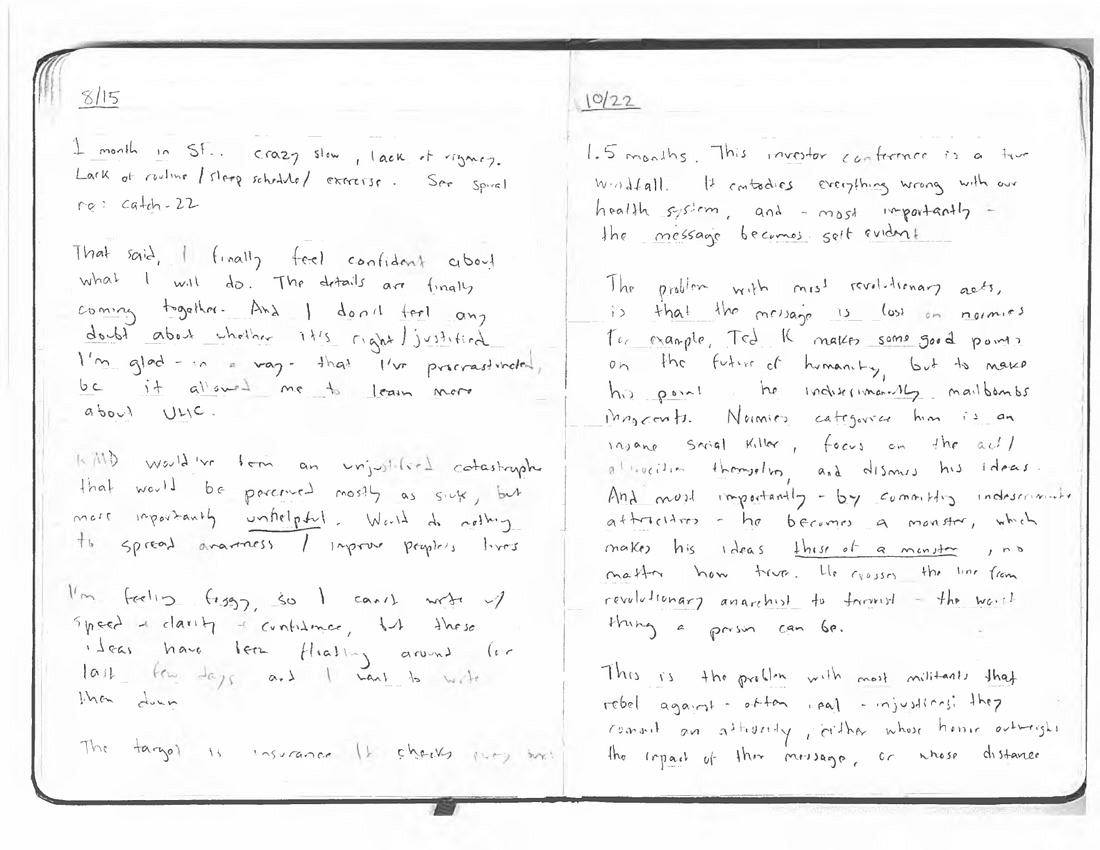 8/15
1 month in SF.. crazy slow, lack of
Lack of routine / sleep schedule / exercise. See spiral
re: catch-22
That said, I finally feel confident about
what I will do. The details are finally
coming together. And I don't feel any
doubt about whether it's right/justified
I'm glad - in a way - that I've procrastinated,
bc it allowed me to learn more
about
KMD would've been an unjustified catastrophe
that would be perceived mostly as sick, but
more importantly unhelpful. Would do nothing
to spread awareness / improve people's lives
I'm feeling foggy, so I can't write w/
speed + clarity + confidence, but these
ideas have been floating around for
last few days and I want to write
them down
The target is insurance It checks every
10/22
1.5 months. This investor conference is a true
windfall. It embodies everything wrong with our
health system, and - most importantly -
the message becomes self evident
The problem with most revolutionary acts,
is that the message is lost on normies
For example, Ted K makes some good points
on the future of humanity, but to make
his point he indiscriminantly mailbombs
innocents. Normies categorize him is an
insane serial killer, focus on the act/
themselves, and dismiss his ideas.
And most importantly - by committing indescriminate
attrocities - he becomes a monster, which
makes his ideas those of a monster, no
matter how true. He crosses the line from
revolutionary anarchist to terrorist - the worst
thing a person can be.
This is the problem with most militants that
rebel against - often real - injustices: they
commit an attrocity, either whose horror outweighs
the impact of their message, or whose distance